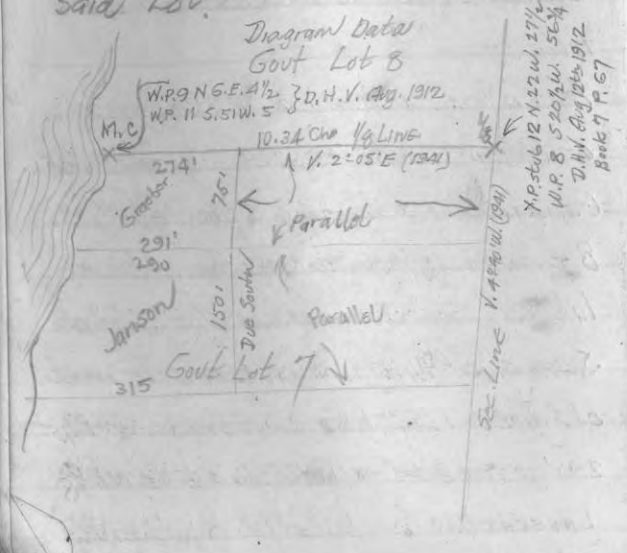 Said Lot.
Diagram Data
Govt Lot 8
W.P. 9 N 6.E. 4 1/2
W.P. 11 S. 51 W. 5
} D. H. V. Aug. 1912
M.C
10.34 Chs 1/8 Line
V. 2°05'E (1941)
274'
Graeber
75'
Parallel
291'
290
Janson
150'
Due South
Parallel
Govt Lot 7
315
Sec. Line V. (1941)
Y.P. stub 12 N. 22 W. 27 1/2
W.P. 8 S 20 1/2 W. 56 1/4
D.H.V. Aug 12th 1912
Book 7 P. 67